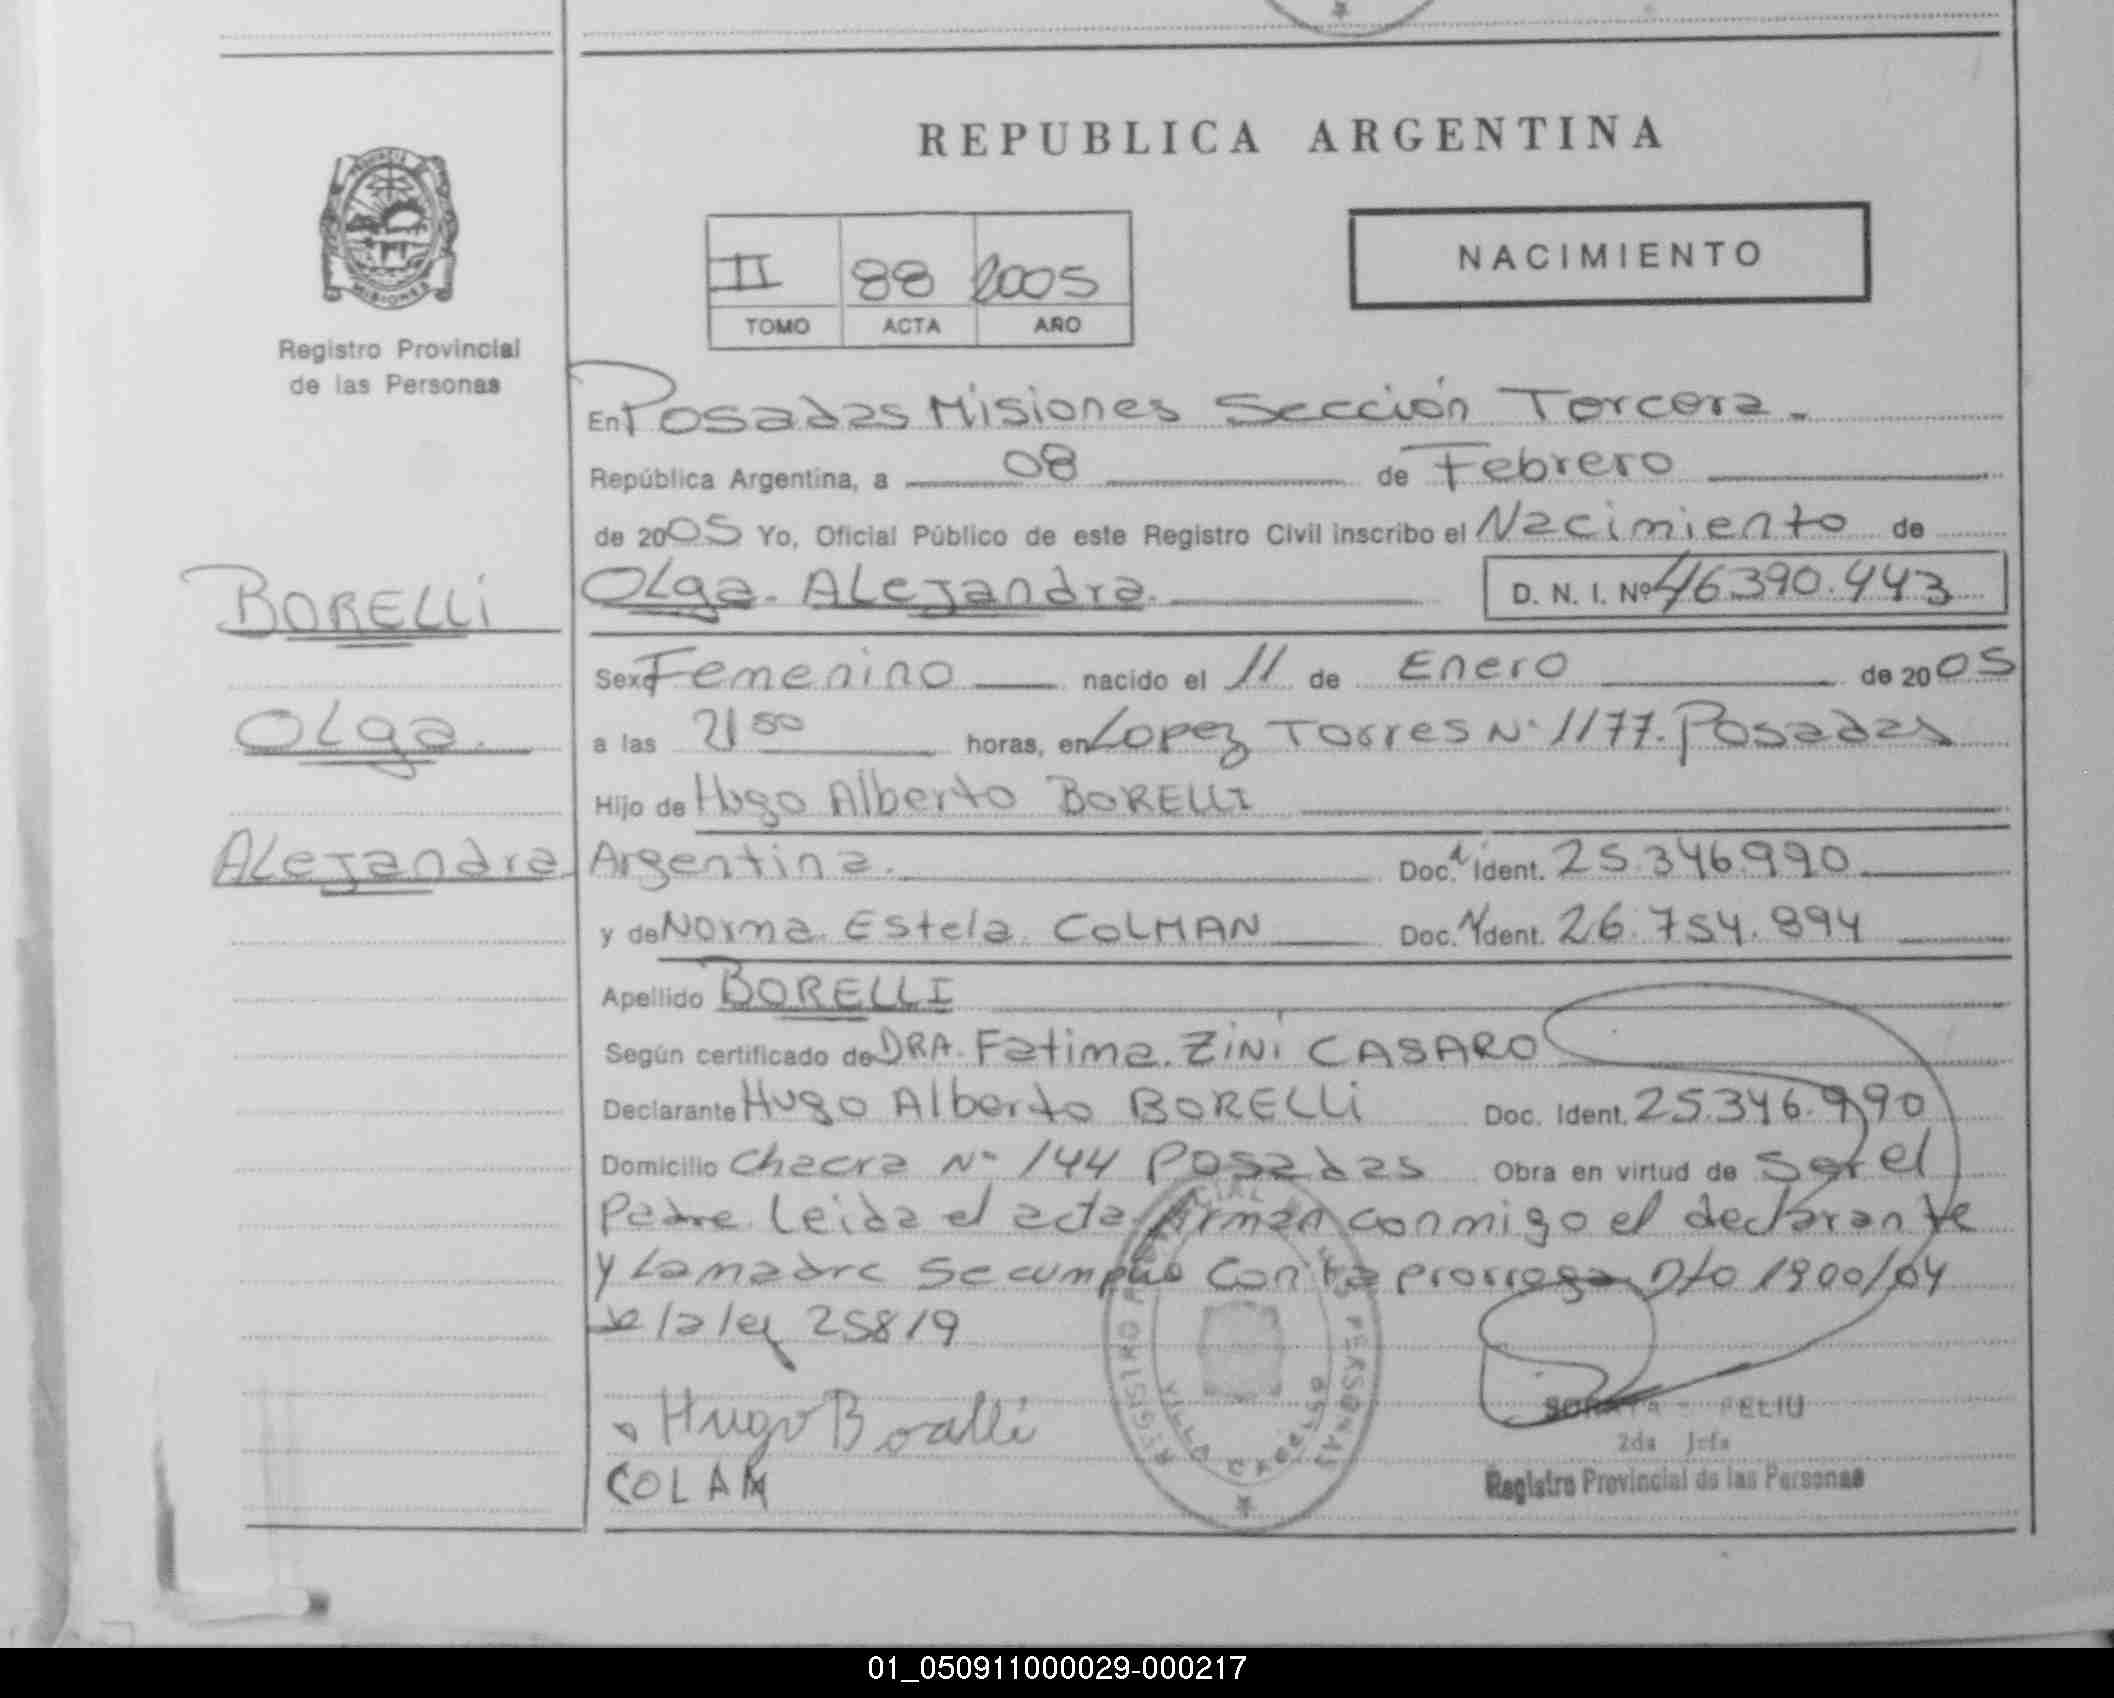 REPUBLICA ARGENTINA
PROVINCIA DE
MISIONES
Registro Provincial
de las Personas
II 88 2005
TOMO ACTA AÑO
NACIMIENTO
En Posadas Misiones Sección Tercera.
República Argentina, a 08 de Febrero
de 2005 Yo, Oficial Público de este Registro Civil inscribo el Nacimiento de
BORELLi
Olga. Alejandra. D. N. I. Nº 46.390.443
Sexo Femenino nacido el 11 de Enero de 2005
Olga.
a las 21 50 horas, en Lopez Torres Nº 1177. Posadas
Hijo de Hugo Alberto BORELLI
Alejandra
Argentina. Doc. Ident. 25.346.990
y de Norma. Estela. COLMAN Doc. Ident. 26.754.894
Apellido BORELLI
Según certificado de DRA. Fatima. ZiNi CASARO
Declarante Hugo Alberto BORELLi Doc. Ident. 25.346.990
Domicilio Chacra Nº 144 Posadas Obra en virtud de Ser el
Padre. Leida el acta firman conmigo el declarante
y La madre Se cumplio Con la prorroga Dto 1900/04
de la ley 25819
Hugo Borelli
COLAM
REGISTRO PROVINCIAL DE LAS PERSONAS
VILLA CABELLO
FELIU
2da Jefa
Registro Provincial de las Personas
01_050911000029-000217